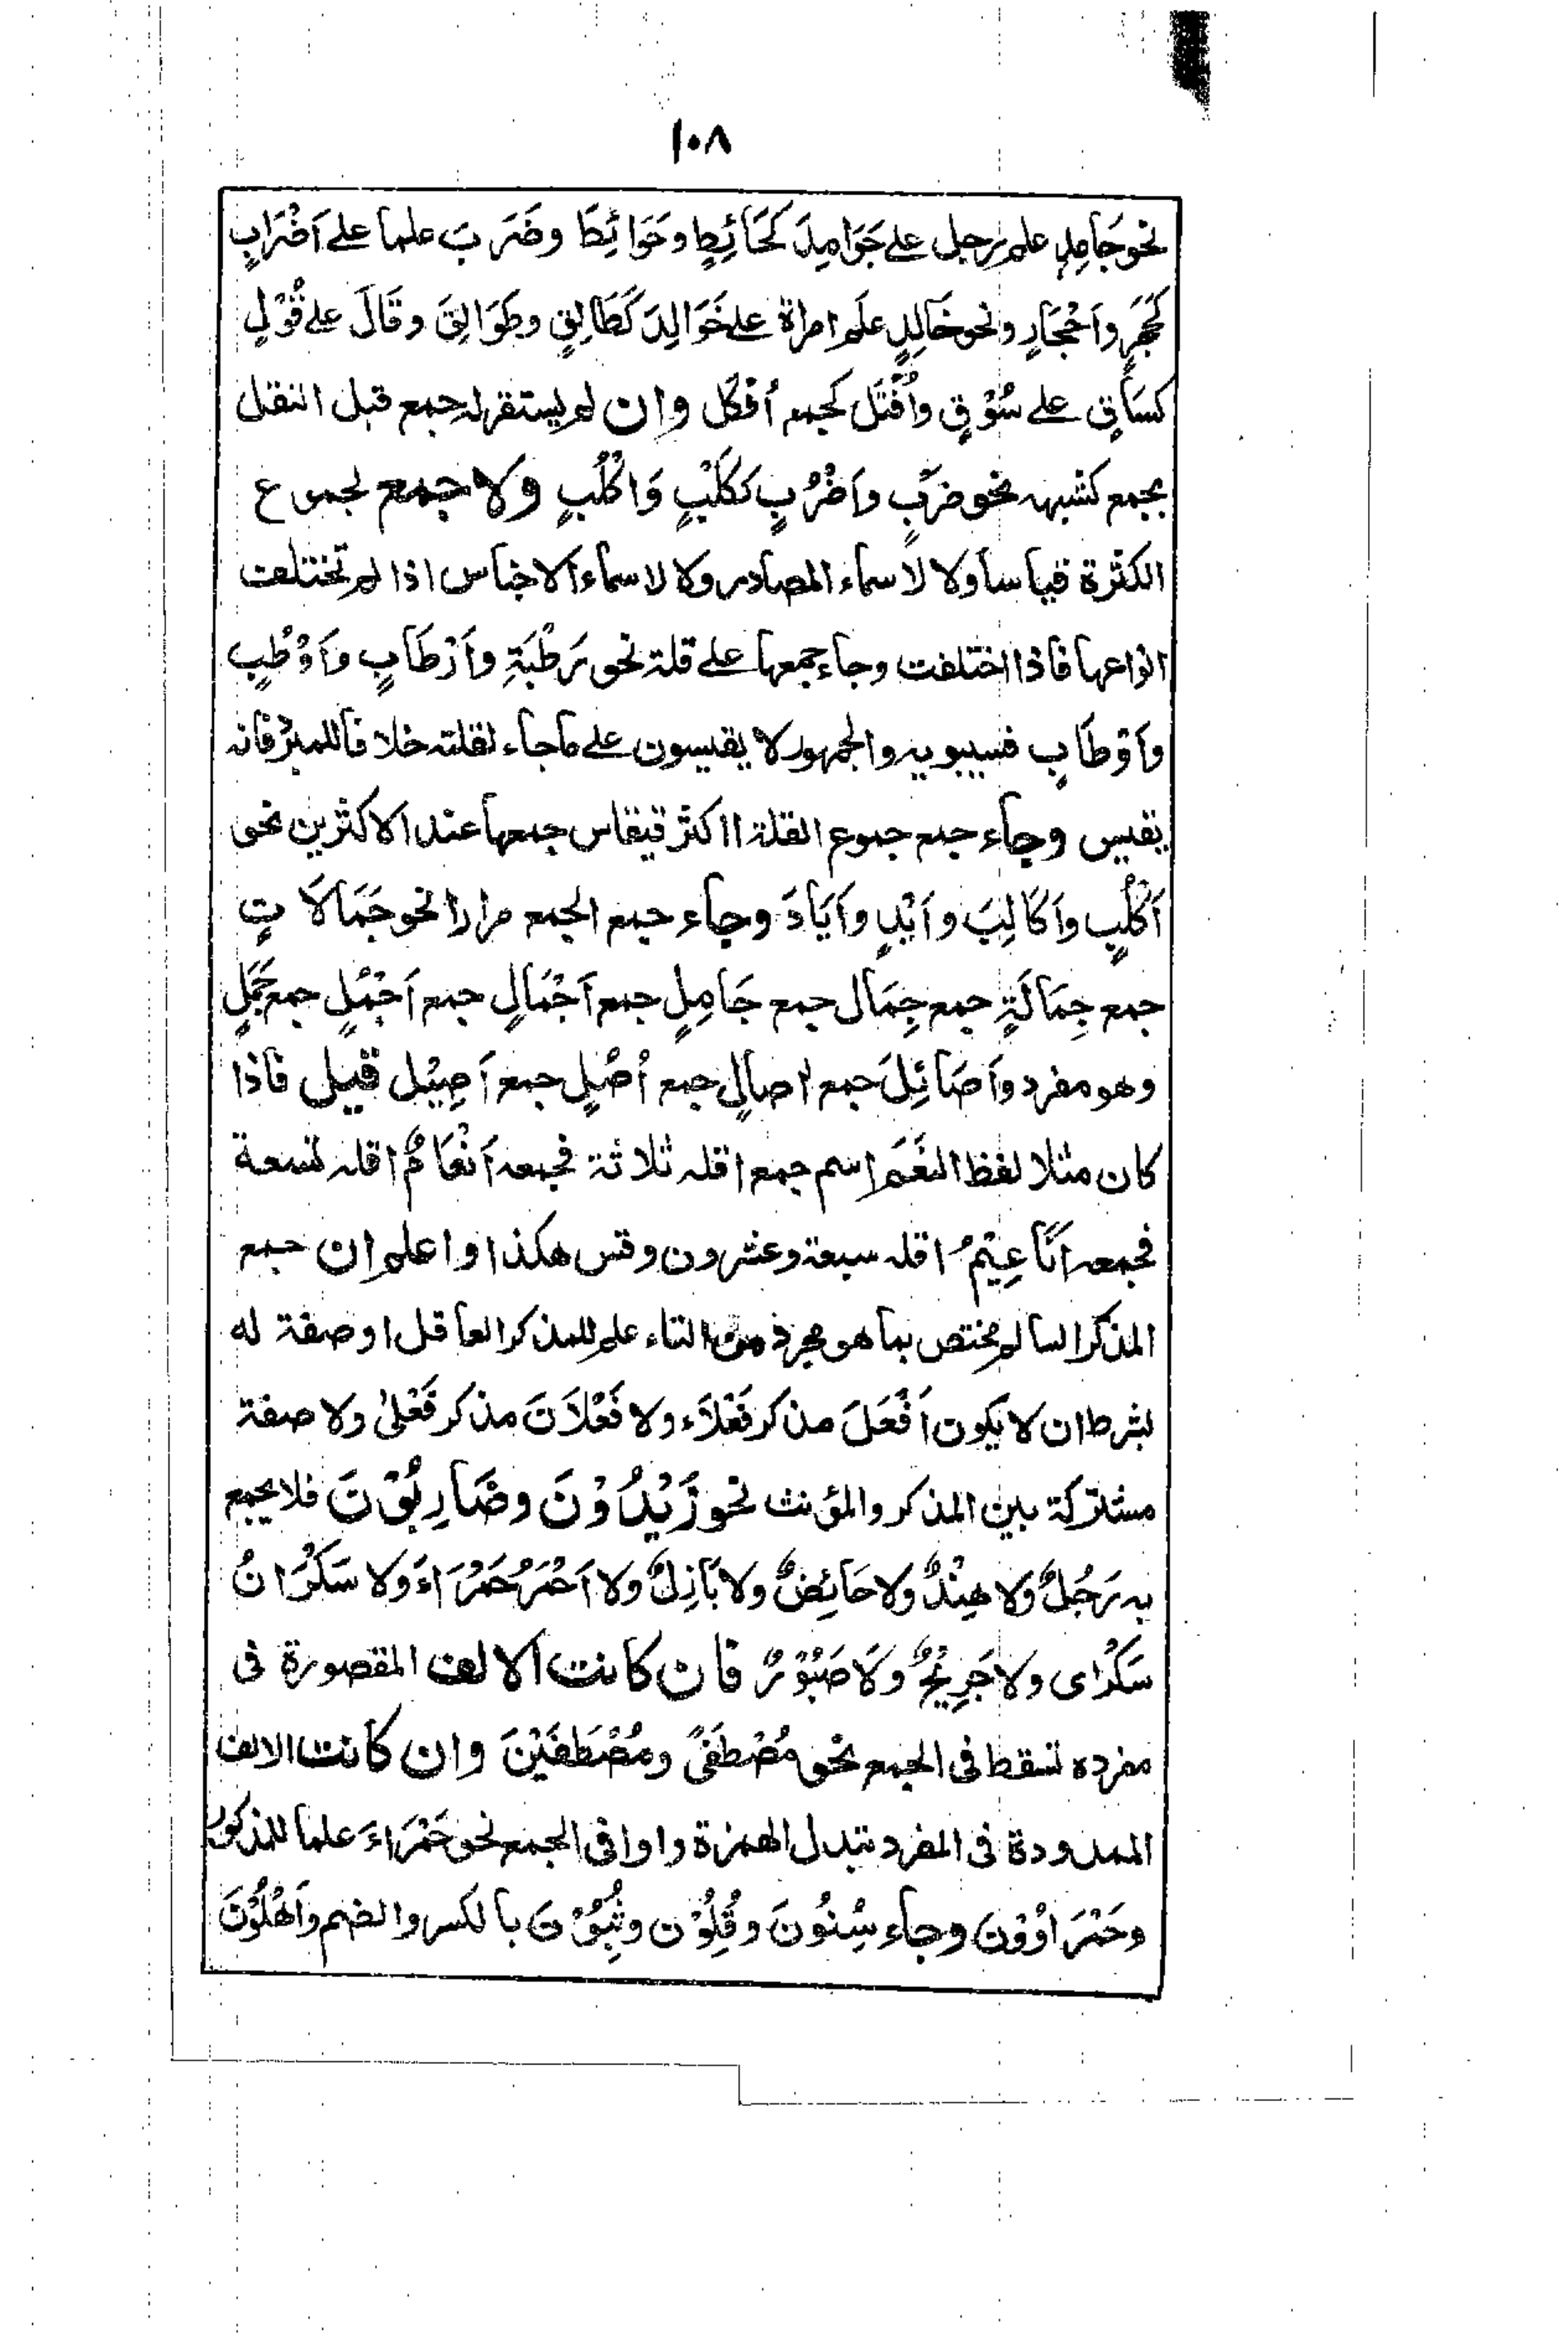 ١٠٨
نحو جَامِدٍ علم رجل على جَوَامِدَ كَحَائِطٍ وحَوَائِطَ وضَرَبَ علما على اَضْرَابٍ
كَحَجَرٍ واَحْجَارٍ ونحو خَالِدٍ علَم امراة على خَوَالِدَ كَطَالِقٍ وطَوَالِقَ وقَالَ على قُوْلٍ
كسَاقٍ على سُوْقٍ واُقْتَل كجمع اُفكَل وان لم يستقر له جمع قبل النقل
يجمع كشبهه نحو ضَرَبٍ واَضْرُبٍ ككَلْبٍ وَاَكْلُبٍ ولا جمع لجموع
الكثرة قياسا ولا لاسماء المصادر ولا لاسماء الاجناس اذا لم تختلف
انواعها فاذا اختلفت وجاء جمعها على قلة نحو رَطْبَةٍ واَرْطَابٍ واَوْطُبٍ
واَوْطَابٍ فسيبويه والجمهور لا يقيسون على ما جاء لقلته خلافا للمبرد فانه
يقيس وجاء جمع جموع القلة اكثر فيقاس جمعها عند الاكثرين نحو
اَكْلُبٍ واَكَالِبَ واَيْدٍ واَيَادَ وجاء جمع الجمع مرارا نحو جَمَالَاتٍ
جمع جِمَالَةٍ جمع جِمَال جمع جَامِلٍ جمع اَجْمَالٍ جمع اَجْمُلٍ جمع جَمَلٍ
وهو مفرد واَصَائِلَ جمع اصالٍ جمع اُصُلٍ جمع اَصِيْل قيل فاذا
كان مثلا لفظ النَعَم اسم جمع اقله ثلاثة فجمعه اَنْعَامٌ اقله تسعة
فجمعه اَنَاعِيْمُ اقله سبعة وعشرون وقس هكذا واعلم ان جمع
المذكر السالم مختص بما هو مجرد من التاء علم للمذكر العاقل او صفة له
بشرط ان لا يكون اَفْعَلَ مذكر فَعْلَاء ولا فَعْلَانَ مذكر فَعْلٰى ولا صفة
مشتركة بين المذكر والمؤنث نحو زَيْدُوْنَ وضَارِبُوْنَ فلا يجمع
به رَجُلٌ ولا هِنْدٌ ولا حَائِضٌ ولا بَازِلٌ ولا اَحْمَرُ حَمْرَاءَ ولا سَكْرَانُ
سَكْرٰى ولا جَرِيْحٌ ولَا صَبُوْرٌ فان كانت الالف المقصورة فى
مفرده تسقط فى الجمع نحو مُصْطَفًى ومُصْطَفَيْنَ وان كانت الالف
الممدودة فى المفرد تبدل الهمزة واوا فى الجمع نحو حَمْرَاءَ علما للمذكور
وحَمْرَاوُوْنَ وجاء سِنُونَ وقُلِوْن وثُبِوْنَ بالكسر والضم واَهْلُوْنَ